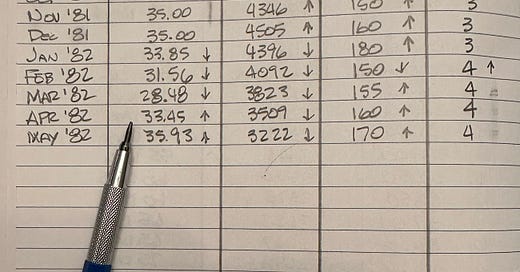 NOV '81 35.00 4346 ↑ 150 ↑ 3
DEC '81 35.00 4505 ↑ 160 ↑ 3
JAN '82 33.85 ↓ 4396 ↓ 180 ↑ 3
FEB '82 31.56 ↓ 4092 ↓ 150 ↓ 4 ↑
MAR '82 28.48 ↓ 3823 ↓ 155 ↑ 4
APR '82 33.45 ↑ 3509 ↓ 160 ↑ 4
MAY '82 35.93 ↑ 3222 ↓ 170 ↑ 4